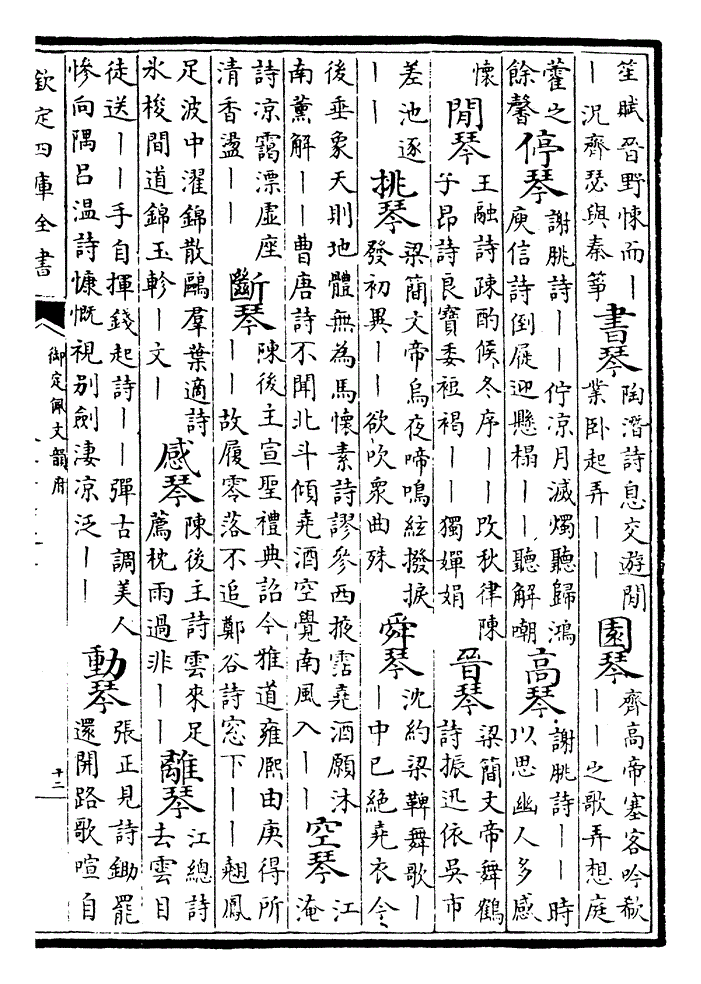 笙賦晉野悚而丨
丨況齊瑟與秦箏
書琴
陶潛詩息交遊閒
業卧起弄丨丨
園琴
齊高帝塞客吟秋
丨丨之歌弄想庭
藿之
餘馨
停琴
謝朓詩丨丨佇凉月滅燭聽歸鴻
庾信詩倒屣迎懸榻丨丨聽解嘲
高琴
謝朓詩丨丨時
以思幽人多感
懷
閒琴
王融詩疎酌候冬序丨丨改秋律陳
子昂詩良寶委短褐丨丨獨嬋娟
晉琴
梁簡文帝舞鶴
詩振迅依吳市
差池逐
丨丨
挑琴
梁簡文帝烏夜啼鳴絃撥捩
發初異丨丨欲吹衆曲殊
舜琴
沈約梁鞞舞歌丨
丨中已絶堯衣今
後垂象天則地體無為馬懷素詩謬參西掖霑堯酒願沐
南薰解丨丨曹唐詩不聞北斗傾堯酒空覺南風入丨丨
空琴
江
淹
詩凉靄漂虛座
清香盪丨丨
斷琴
陳後主宣聖禮典詔今雅道雍熙由庚得所
丨丨故履零落不追鄭谷詩窓下丨丨翹鳳
足波中濯錦散鷗羣葉適詩
氷梭間道錦玉軫丨文丨
感琴
陳後主詩雲來足
薦枕雨過非丨丨
離琴
江總詩
去雲目
徒送丨丨手自揮錢起詩丨丨彈古調美人
慘向隅吕溫詩慷慨視别劍淒凉泛丨丨
動琴
張正見詩鋤罷
還開路歌喧自
欽定四庫全書
御定佩文韻府
十二